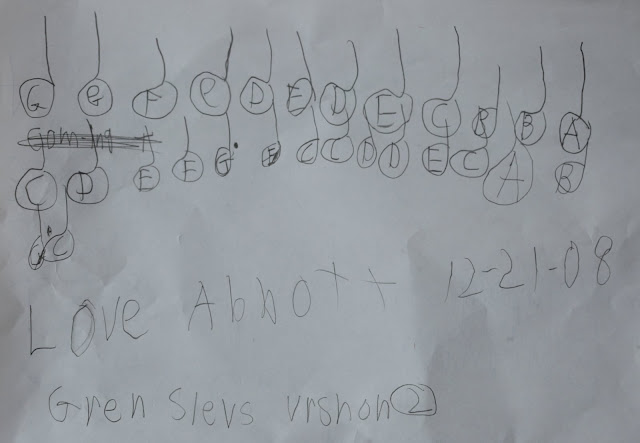 G G F C D E D E C B B A
C D E F G F C C D D E C A B
G C
Love Abbott 12-21-08
Gren Slevs vrshon 2